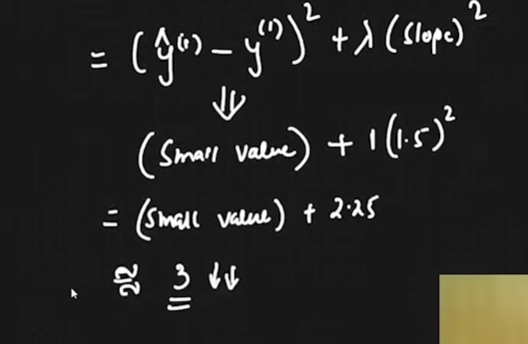 = (ŷ⁽¹⁾ − y⁽¹⁾)² + λ (Slope)²
⇓
(Small value) + 1(1.5)²
= (Small value) + 2.25
≅ 3 ↓↓